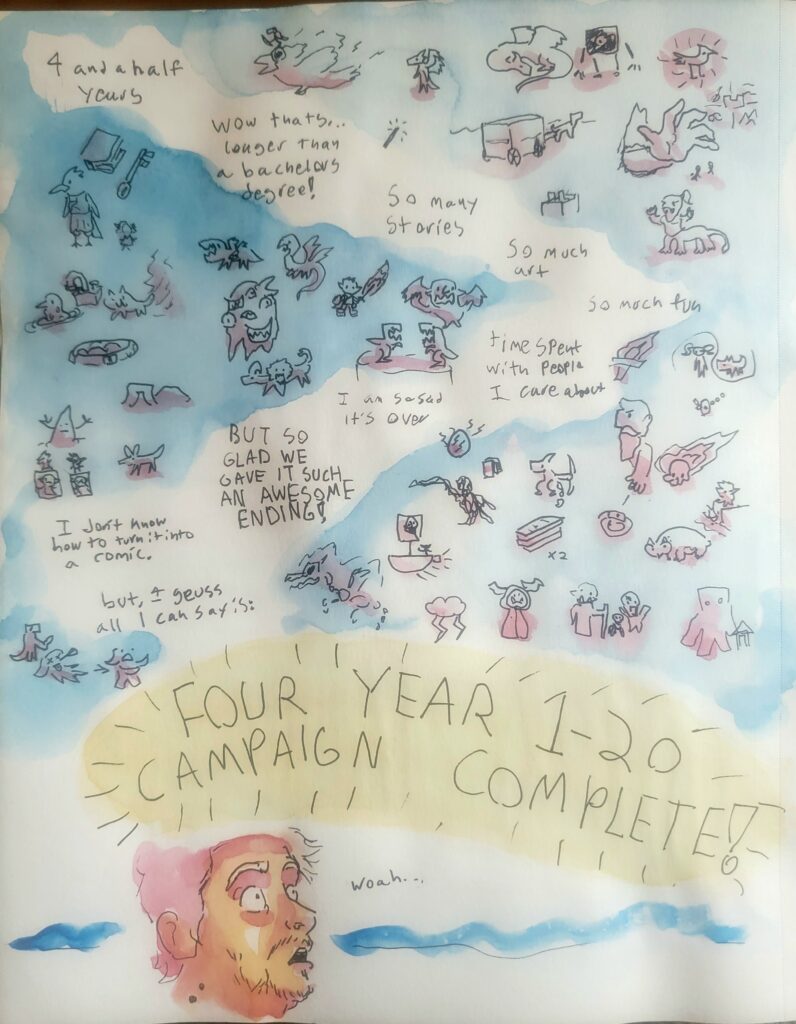 4 and a half
years
Wow thats...
longer than
a bachelors
degree!
So many
Stories
So much
art
So much fun
time spent
with people
I care about
I am so sad
it's over
BUT SO
GLAD WE
GAVE IT SUCH
AN AWESOME
ENDING!
I don't know
how to turn it into
a comic.
x2
but, I geuss
all I can say is:
FOUR YEAR 1-20
CAMPAIGN COMPLETE!
woah...